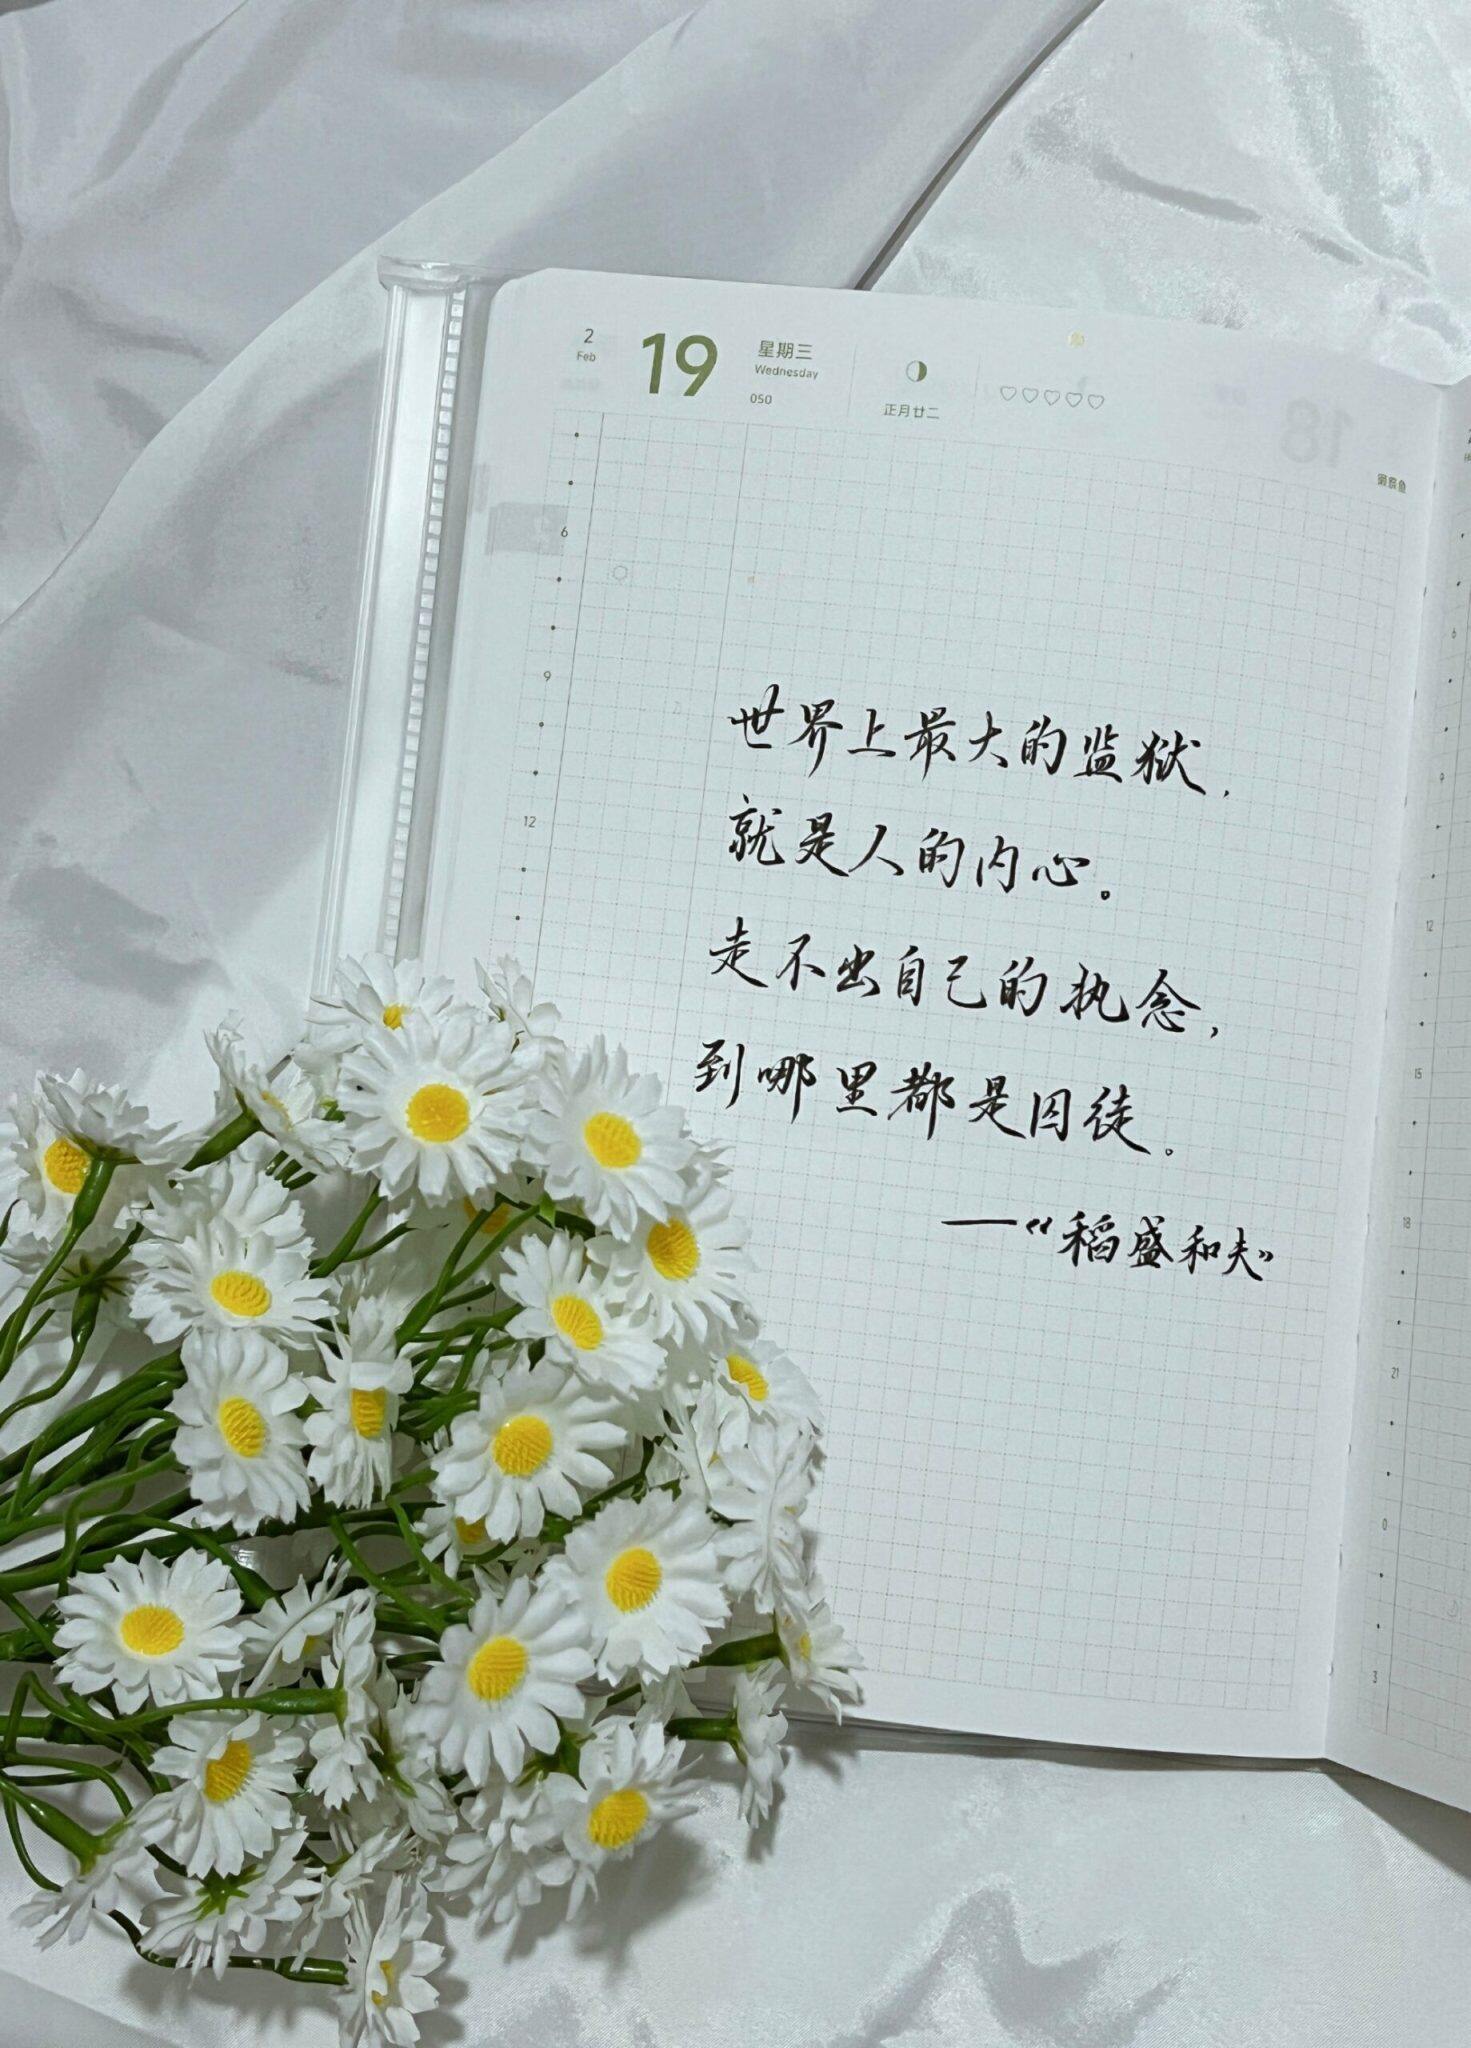 2
Feb
19
星期三
Wednesday
050
正月廿二
18
6
9
12
世界上最大的监狱，
就是人的内心。
走不出自己的执念，
到哪里都是囚徒。
——《稻盛和夫》
6
9
12
15
18
21
0
3